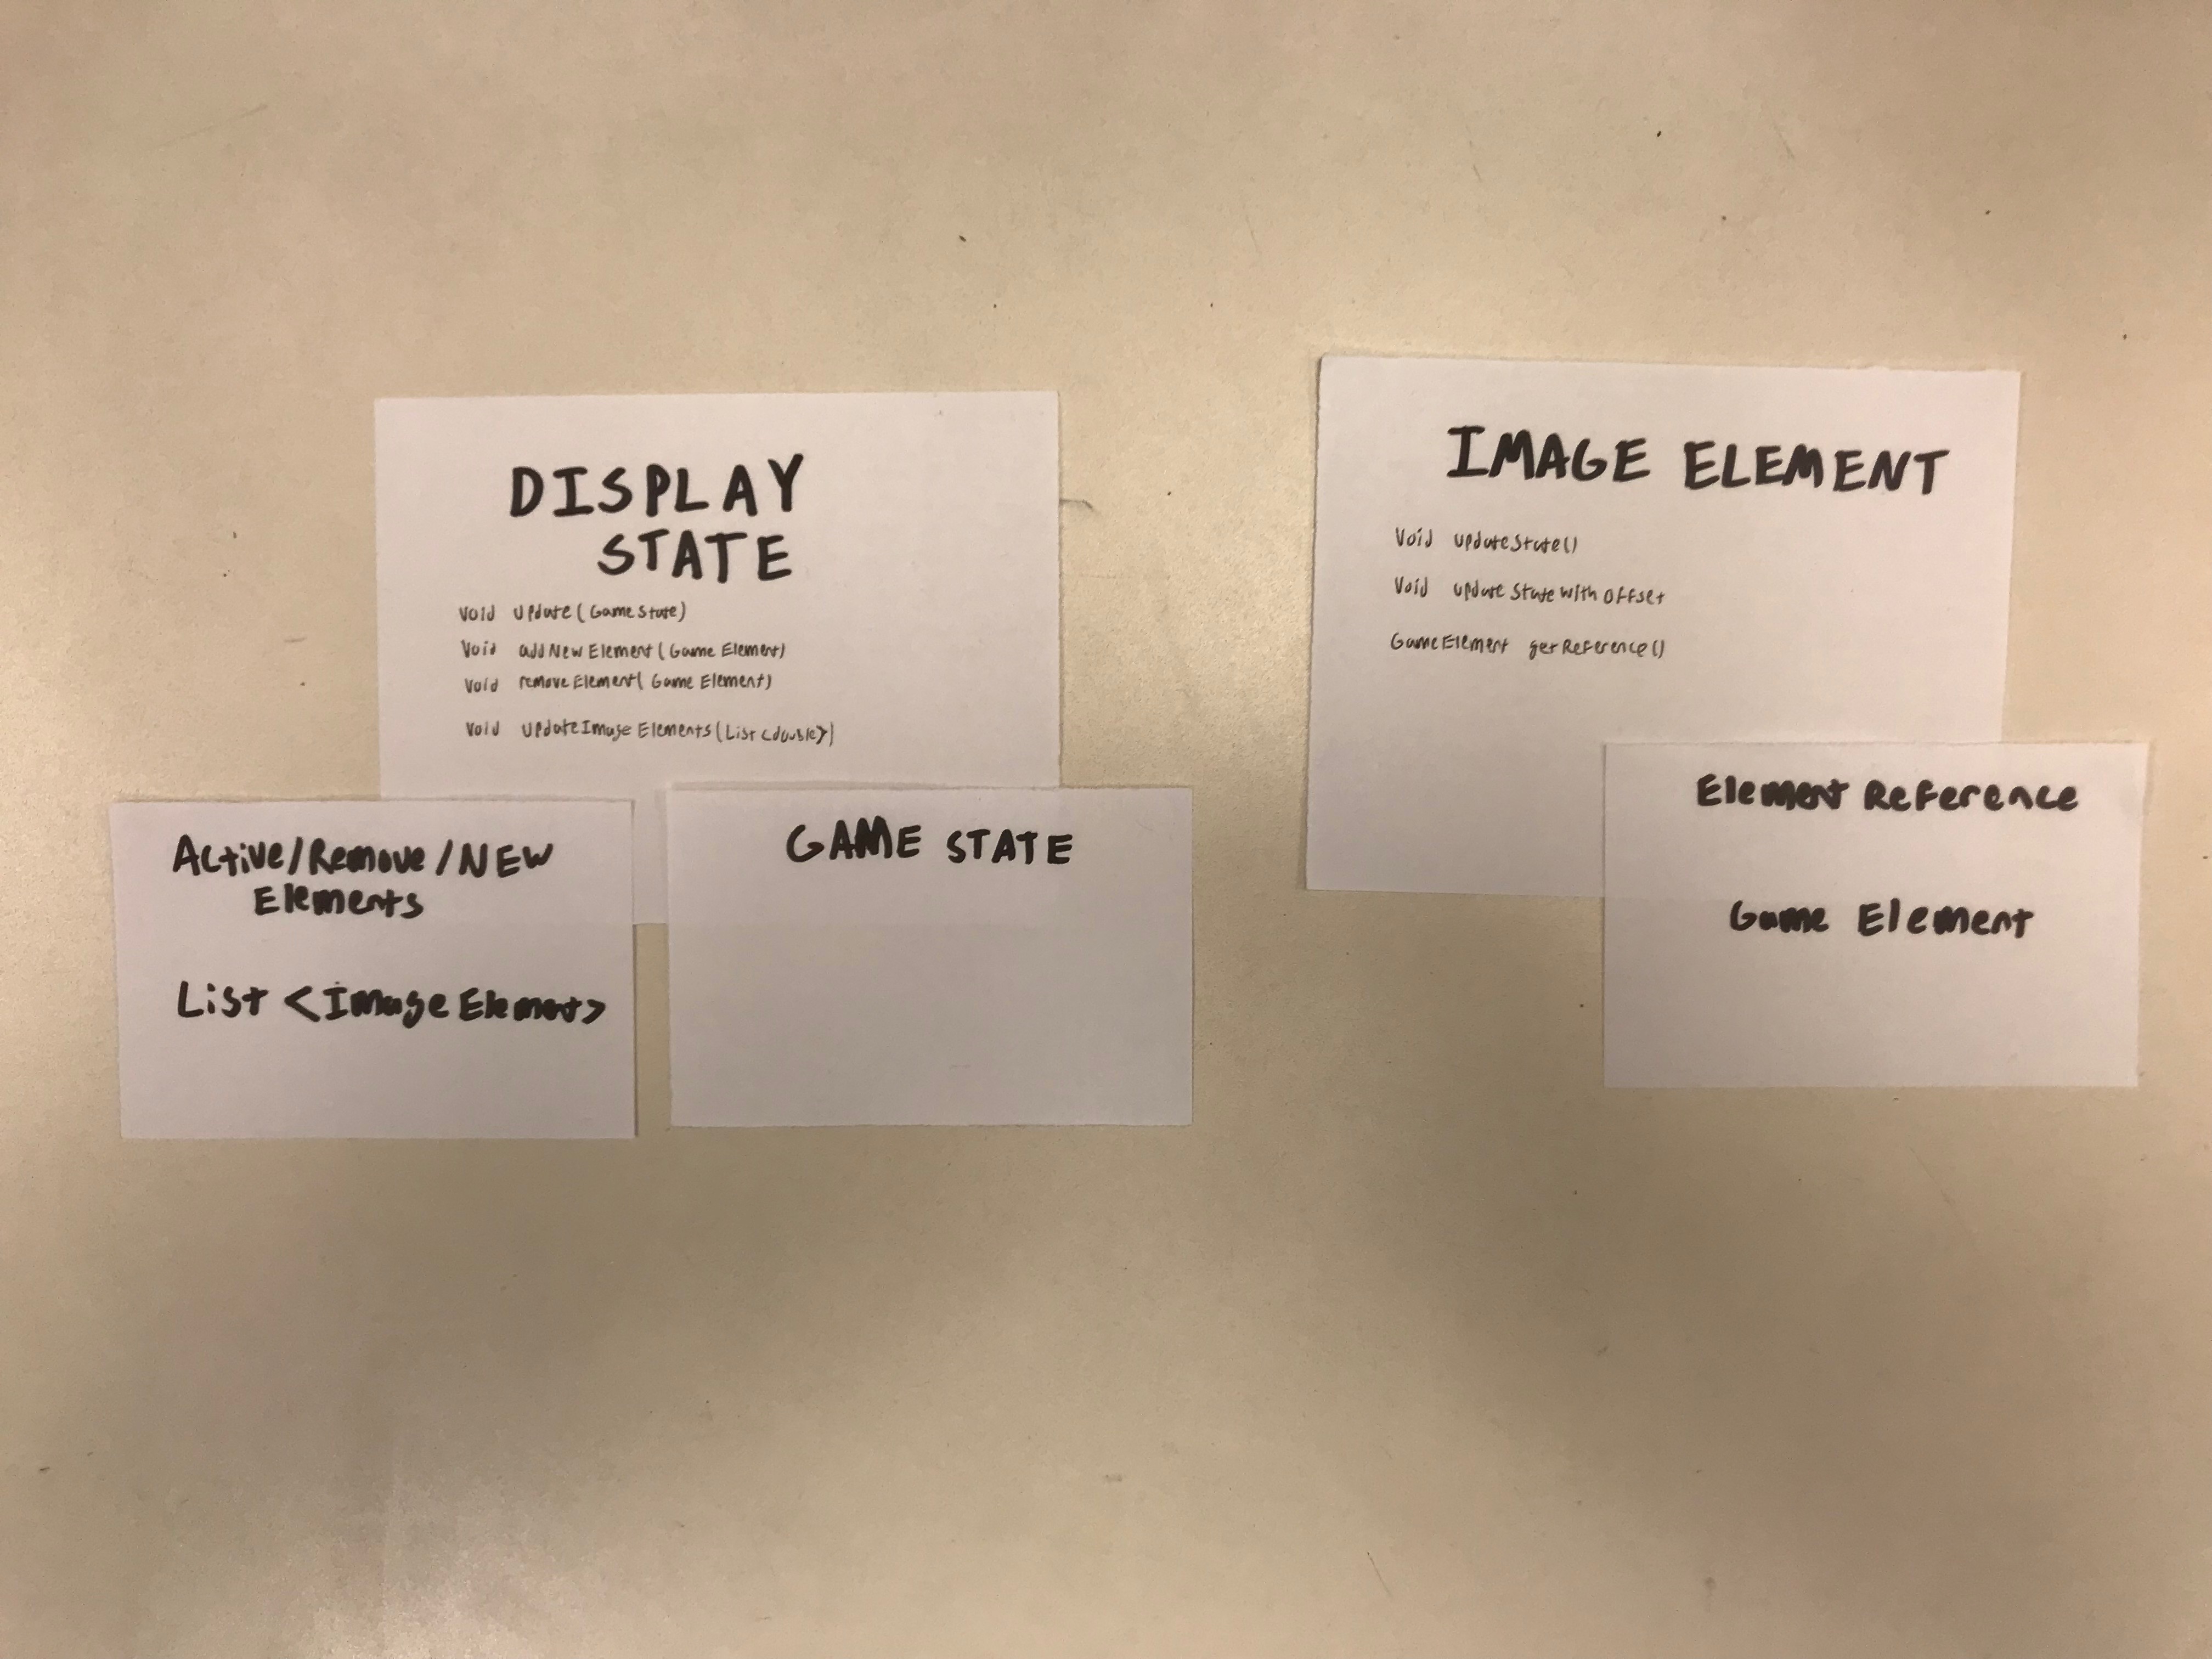 DISPLAY
STATE
Void update(GameState)
Void addNewElement(Game Element)
Void removeElement(Game Element)
Void updateImageElements(List<double>)
Active/Remove/NEW
Elements
List <ImageElement>
GAME STATE
IMAGE ELEMENT
Void updateState()
Void updateStateWithOffset
GameElement getReference()
Element Reference
Game Element